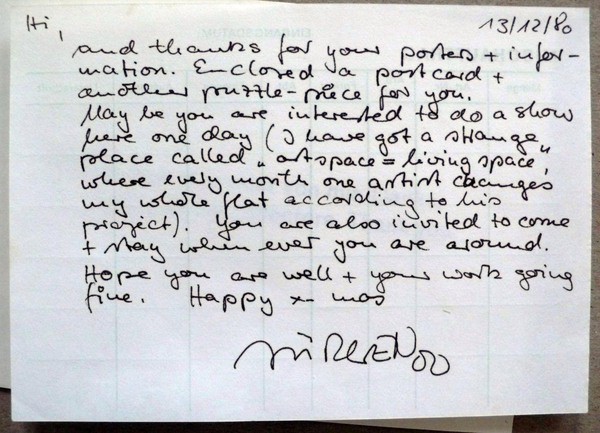 Hi,
13/12/80
and thanks for your posters + infor-
mation. Enclosed a postcard +
another puzzle-piece for you.
May be you are interested to do a show
here one day (I have got a strange
place called „artspace = living space",
where every month one artist changes
my whole flat according to his
project). You are also invited to come
+ stay when ever you are around.
Hope you are well + your work going
fine. Happy x-mas